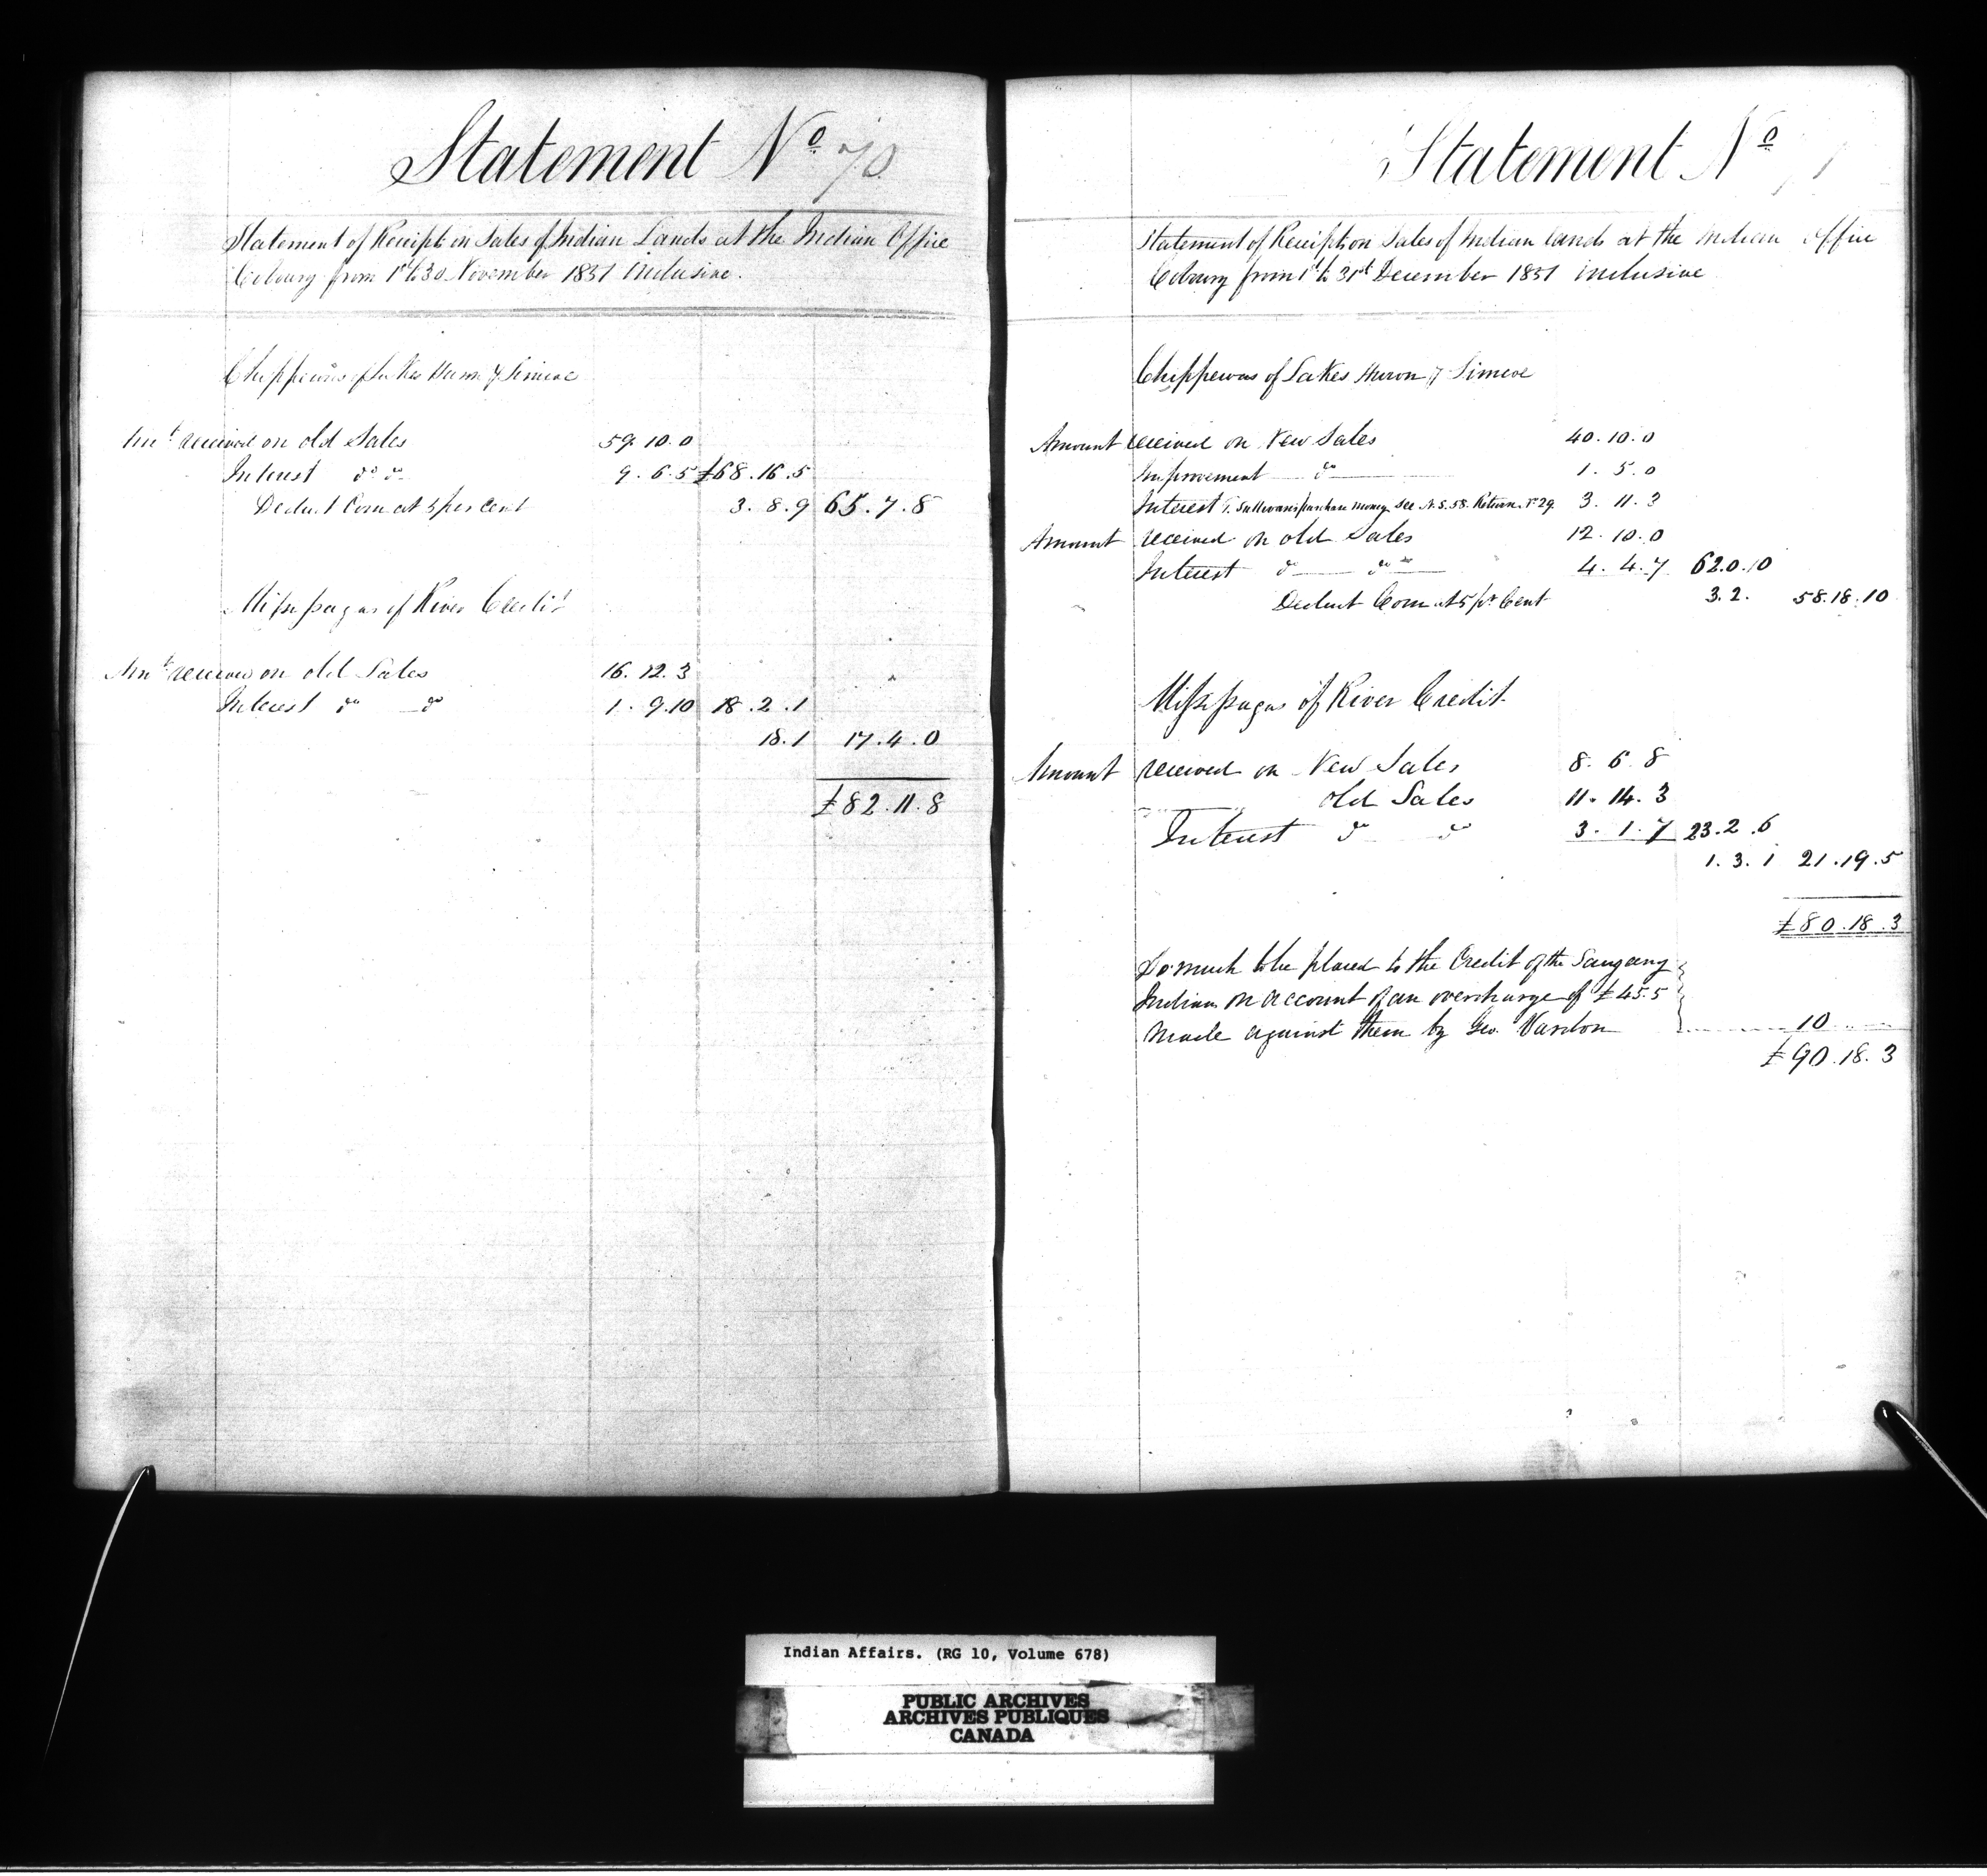 Statement No 70
Statement of Receipts on Sales of Indian Lands at the Indian Office
Cobourg from 1st to 30 November 1851 inclusive.
Chippewas of Lakes Huron & Simcoe
Amt received on old Sales 59.10.0
Interest do do 9.6.5 £68.16.5
Deduct Com at 5 per cent 3.8.9 65.7.8
Missisagas of River Credit
Amt received on old Sales 16.12.3
Interest do do 1.9.10 18.2.1
18.1 17.4.0
£82.11.8
Statement No 71
Statement of Receipts on Sales of Indian lands at the Indian Office
Cobourg from 1st to 31st December 1851 inclusive
Chippewas of Lakes Huron & Simcoe
Amount received on New Sales 40.10.0
Improvement do 1.5.0
Interest T. Sullivans purchase money see N.S. 58 Return No 29 3.11.3
Amount received on old Sales 12.10.0
Interest do do 4.4.7 62.0.10
Deduct Com at 5 pr Cent 3.2. 58.18.10
Missisagas of River Credit
Amount received on New Sales 8.6.8
old Sales 11.14.3
Interest do do 3.1.7 23.2.6
1.3.1 21.19.5
£80.18.3
So much to be placed to the Credit of the Saugeeng
Indians on account of an overcharge of £45.5
made against them by Geo. Vardon 10
£90.18.3
Indian Affairs. (RG 10, Volume 678)
PUBLIC ARCHIVES
ARCHIVES PUBLIQUES
CANADA